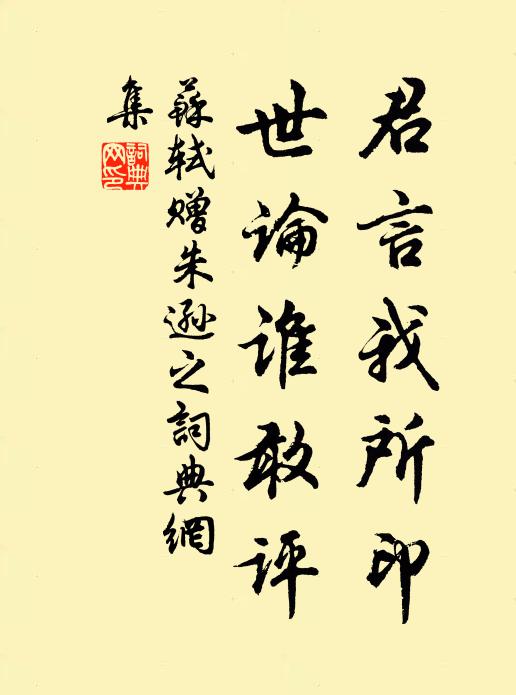 君言我所印
世論谁敢评
蘇軾赠朱遜之詞典網
集
詞典網印